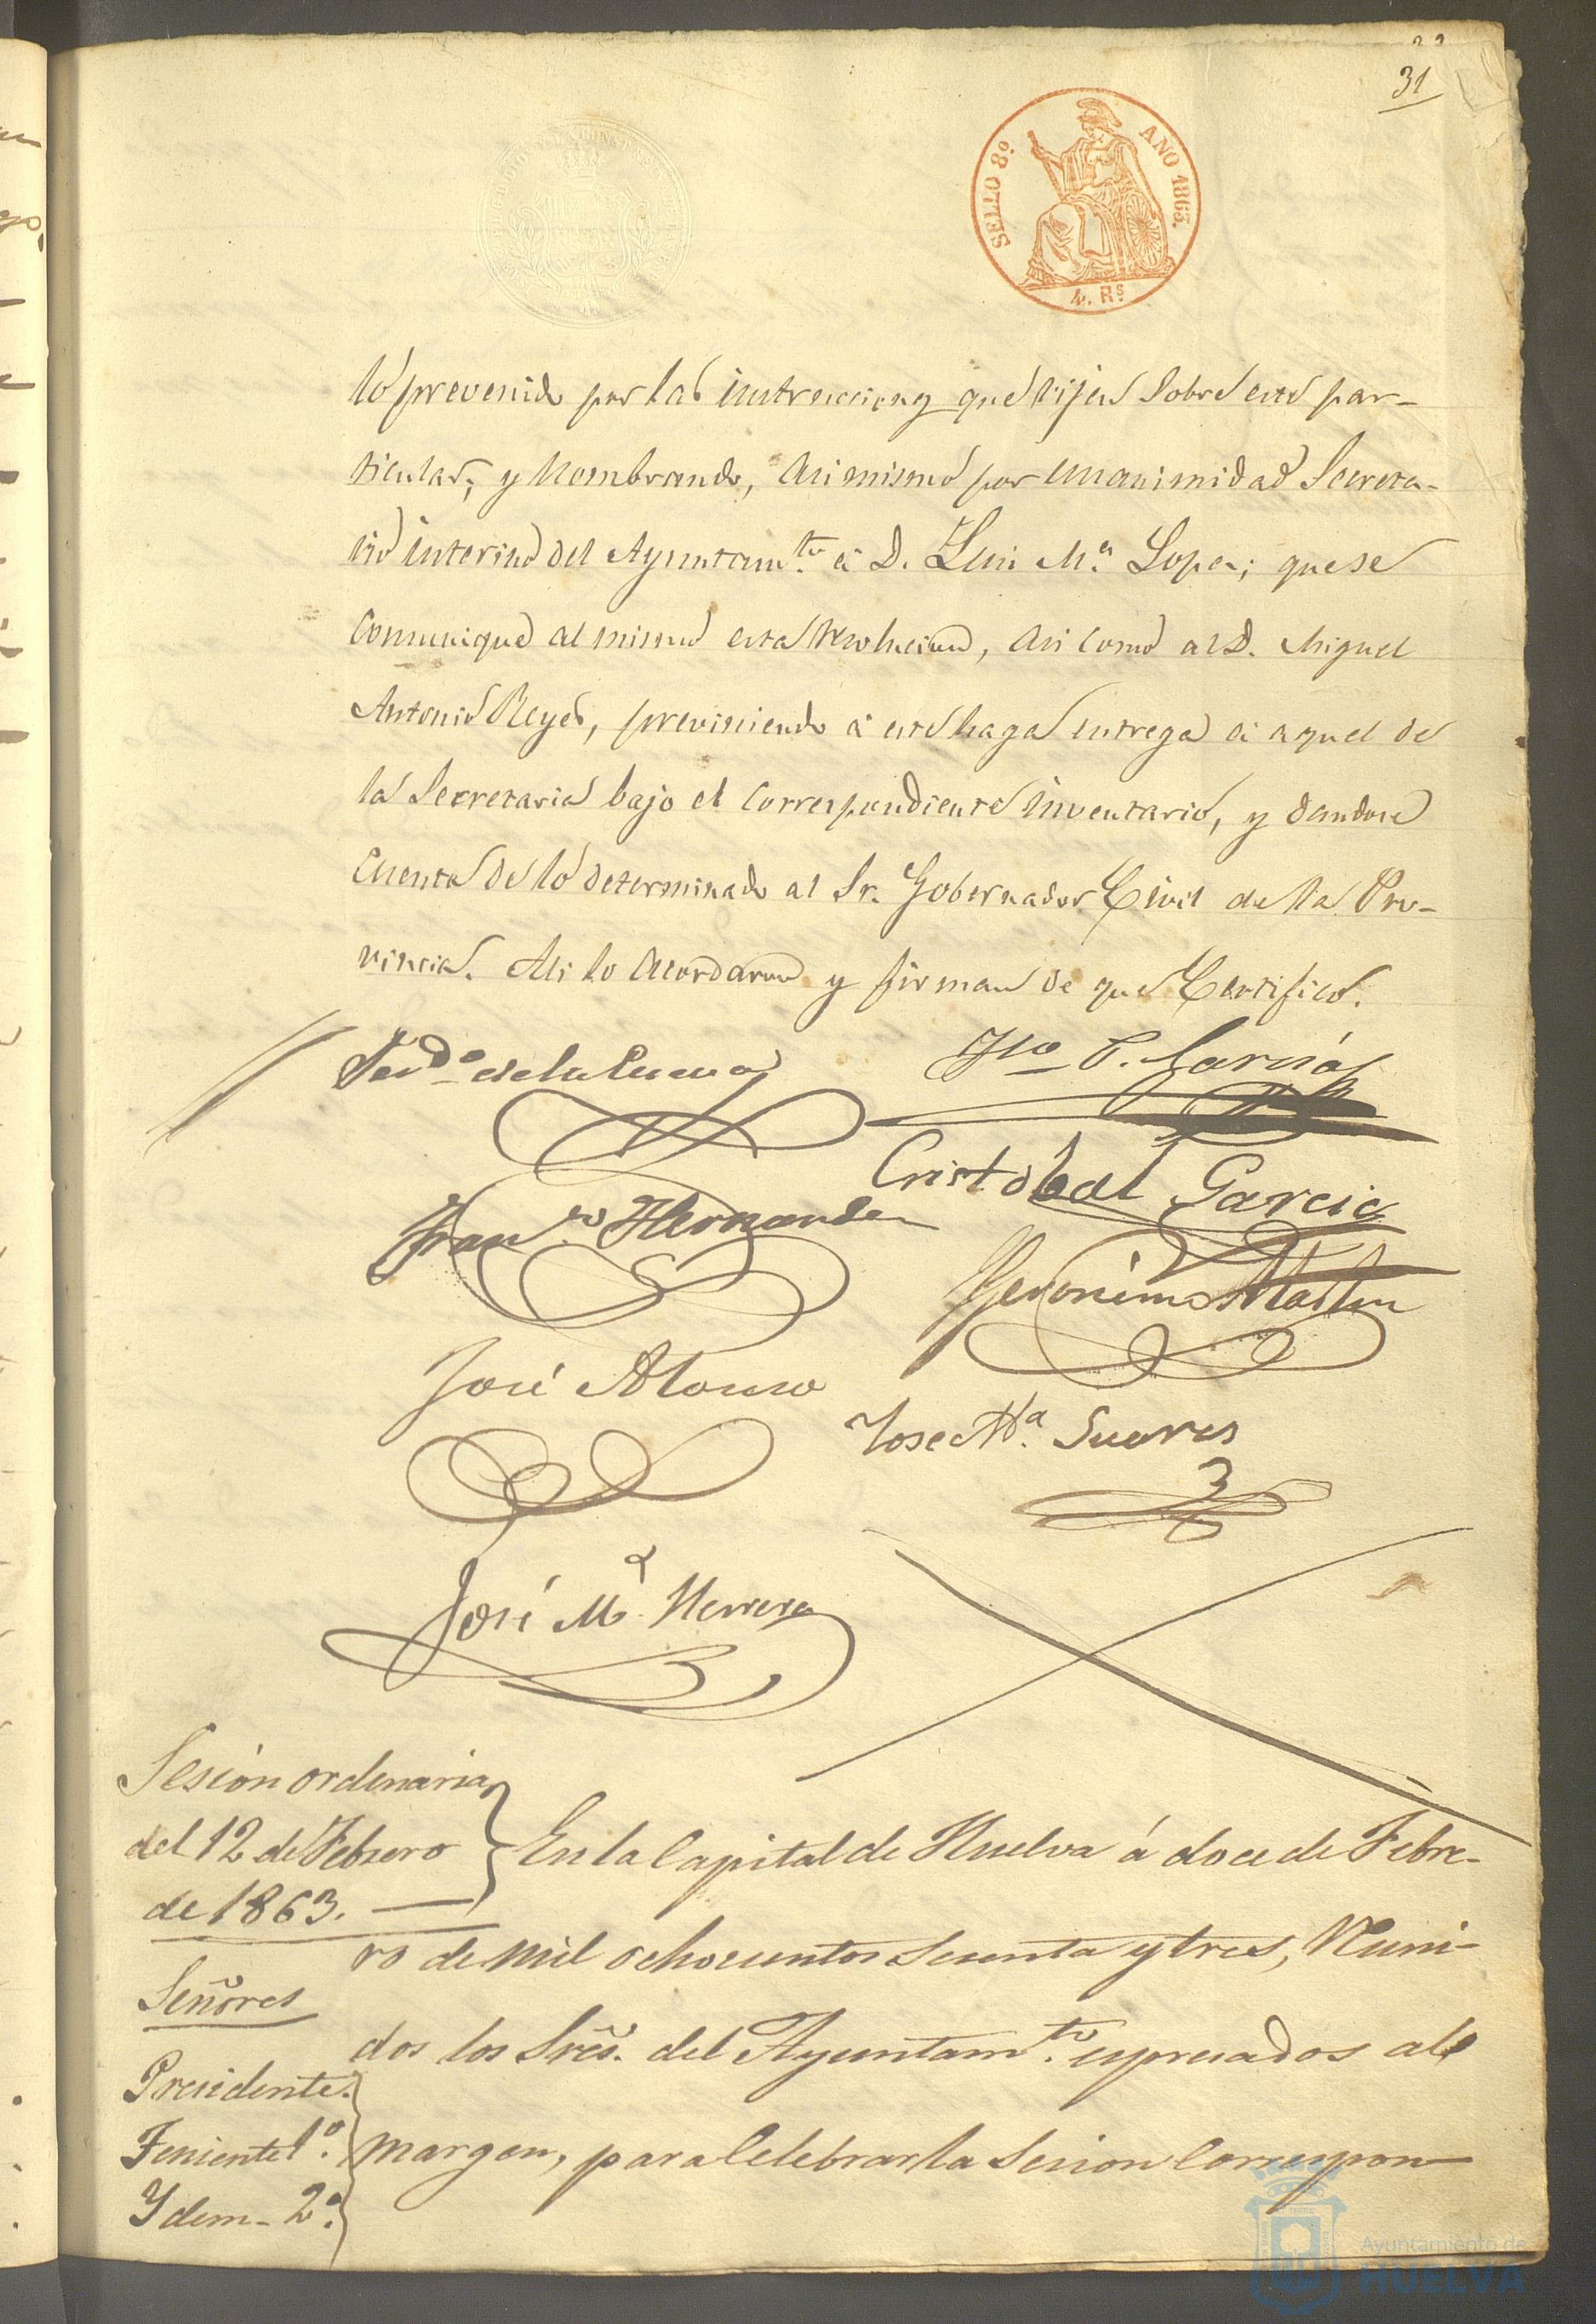 31
SELLO 8º.
AÑO 1863.
4. Rs
lo prevenido por las instrucciones que rijen sobre este par-
ticular; y nombrando, asi mismo por unanimidad Secreta-
rio interino del Ayuntamto. á D. Luis Ma. Lopez; que se
comunique al mismo esta resolucion, asi como al D. Miguel
Antonio Reyes, previniendo á este haga entrega á aquel de
la Secretaria bajo el correspondiente inventario, y dandose
cuenta de lo determinado al Sr. Gobernador Civil de la Pro-
vincia. Asi lo acordaron y firman de que Certifico.
Ferdo. de la Cueva
Garcia
Cristobal Garcia
Franco Hernandez
Geronimo Martin
José Alonso
Jose Ma. Suares
José Ma. Herrera
Sesion ordinaria
del 12 de Febrero
de 1863.
En la Capital de Huelva á doce de Febre-
ro de mil ochocientos sesenta y tres, Reuni-
dos los Sres. del Ayuntamto. espresados al
margen, para Celebrar la Sesion Correspon-
Señores
Presidente.
Teniente 1º.
Ydem- 2º.
Ayuntamiento de
HUELVA